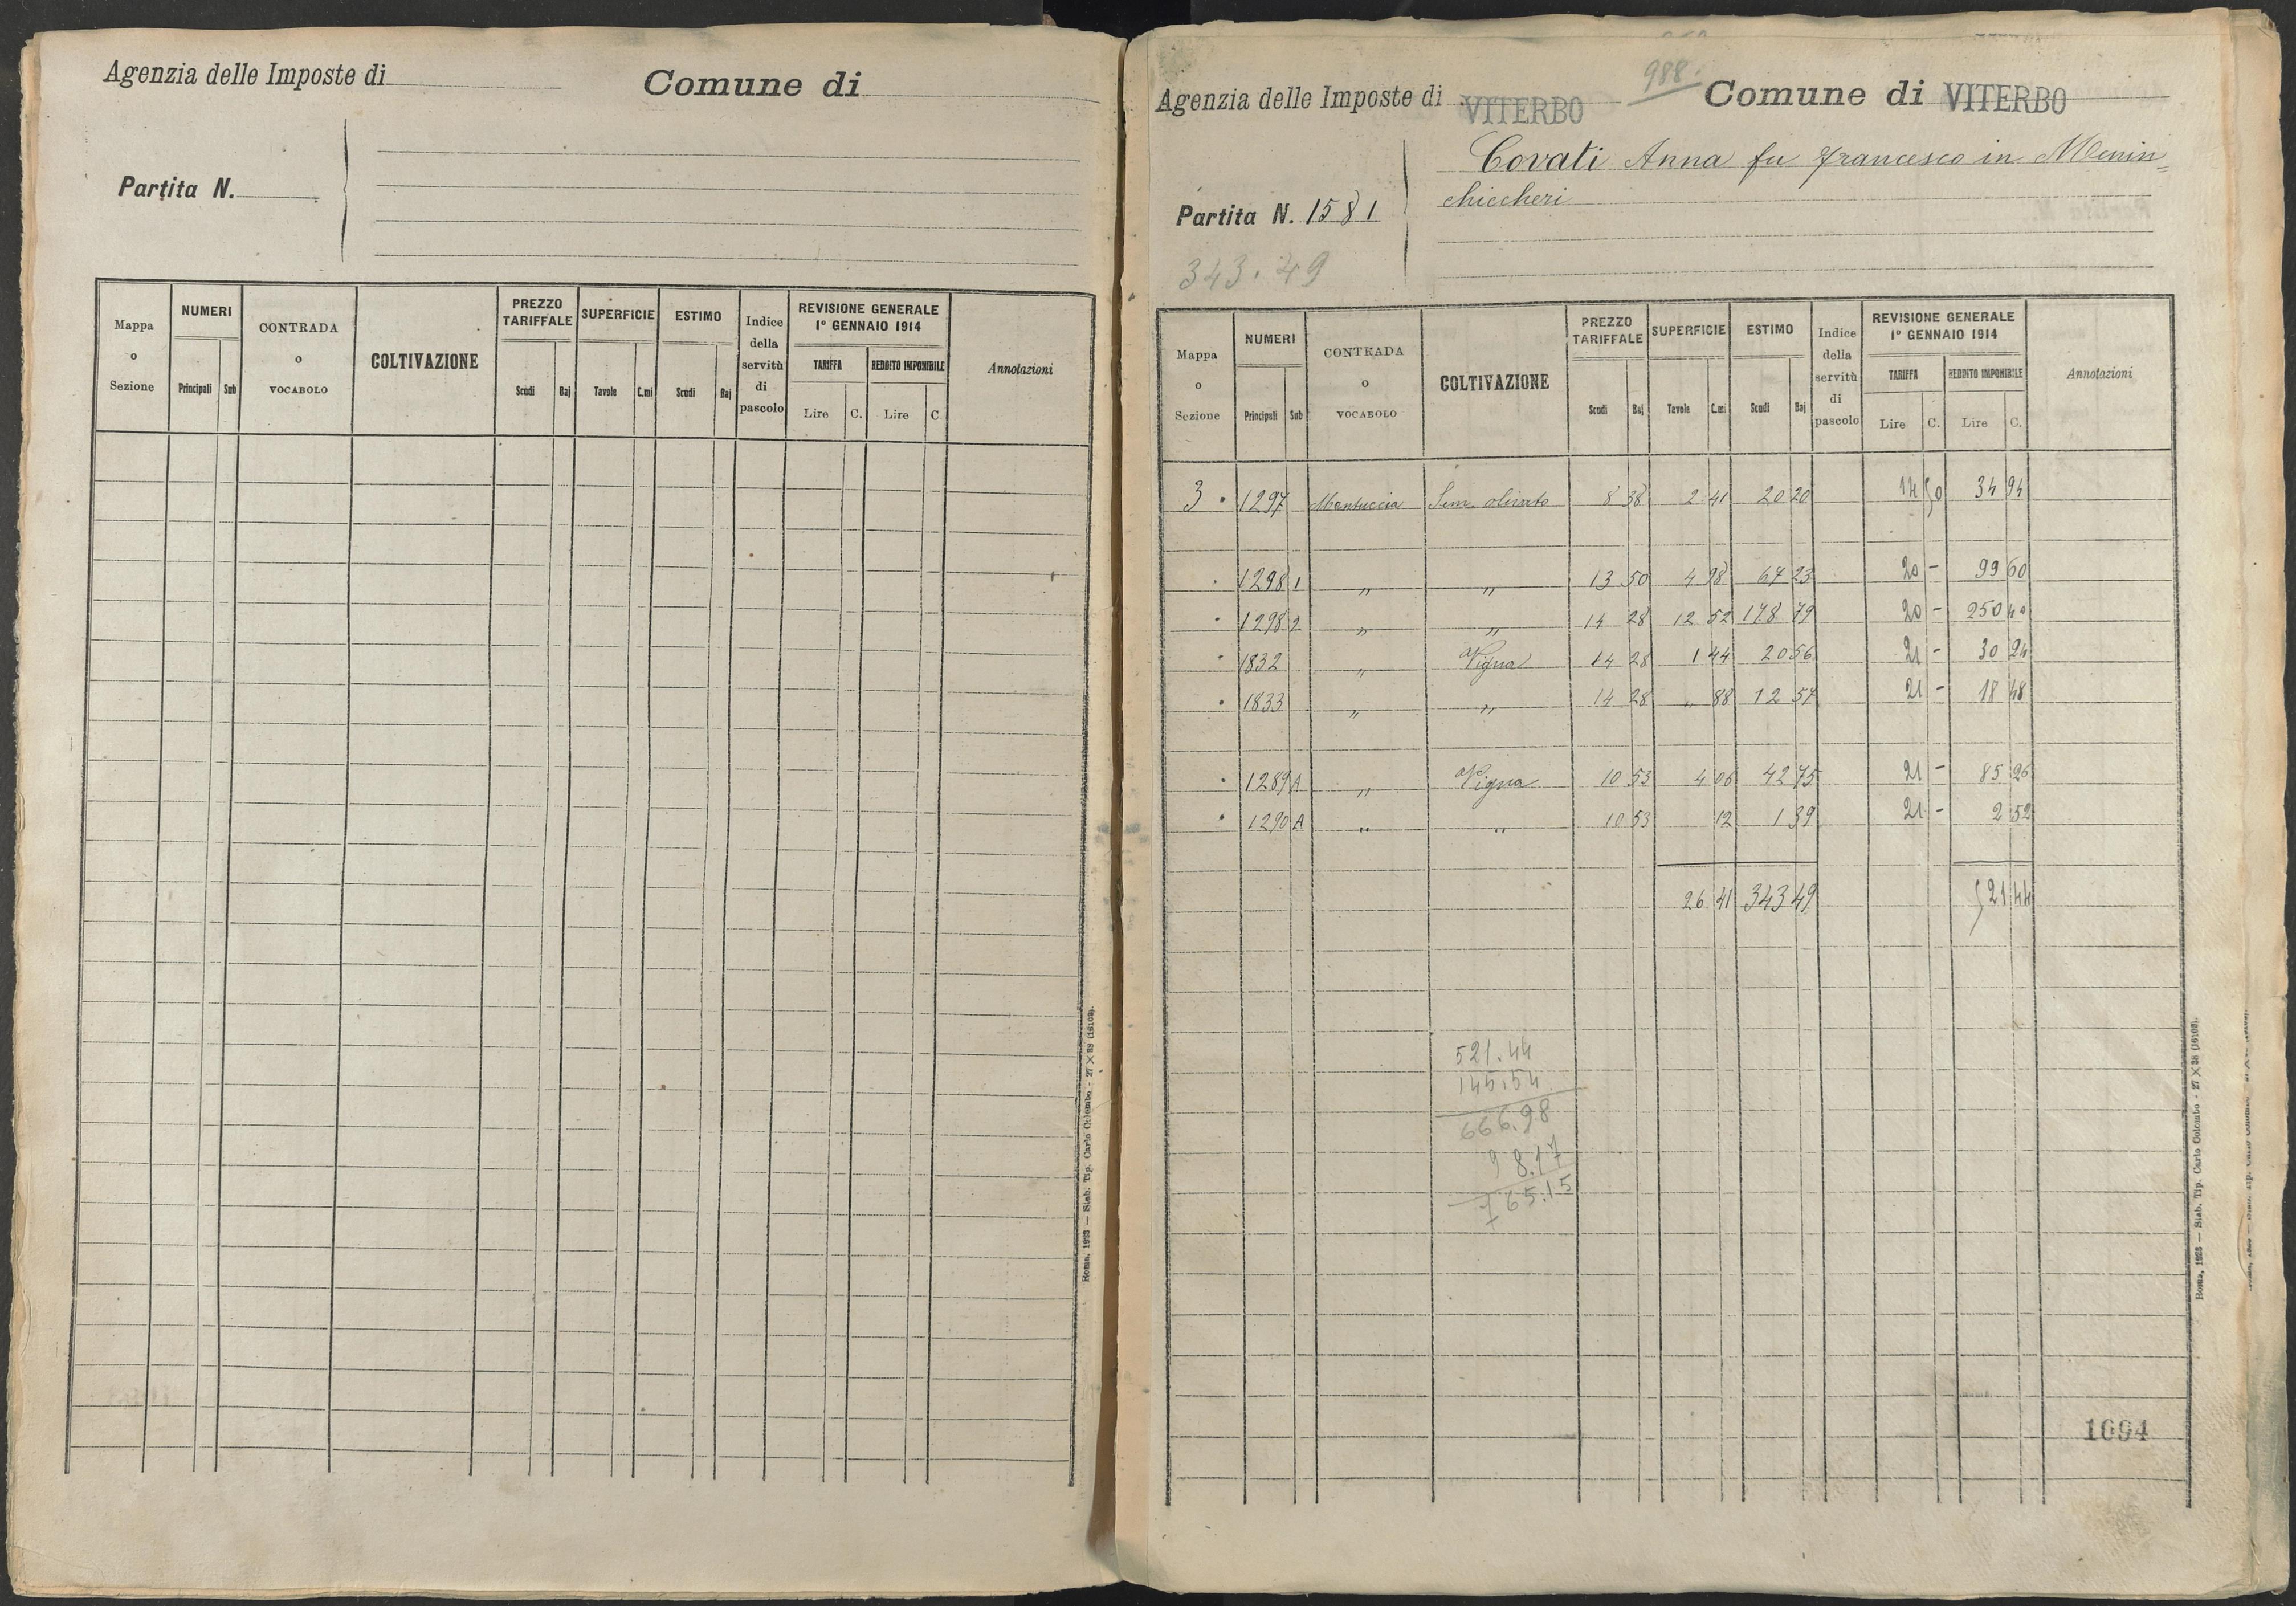 Agenzia delle Imposte di
Comune di
Partita N.
Mappa o Sezione
NUMERI
Principali Sub
CONTRADA o VOCABOLO
COLTIVAZIONE
PREZZO TARIFFALE
Scudi Baj
SUPERFICIE
Tavole C.mi
ESTIMO
Scudi Baj
Indice della servitù di pascolo
REVISIONE GENERALE
1° GENNAIO 1914
TARIFFA REDDITO IMPONIBILE
Lire C. Lire C.
Annotazioni
Roma, 1923 — Stab. Tip. Carlo Colombo - 27 X 38 (15103).
988.
Agenzia delle Imposte di VITERBO
Comune di VITERBO
Covati Anna fu Francesco in Menin=
chiccheri
Partita N. 1581
343.49
Mappa o Sezione
NUMERI
Principali Sub
CONTRADA o VOCABOLO
COLTIVAZIONE
PREZZO TARIFFALE
Scudi Baj
SUPERFICIE
Tavole C.mi
ESTIMO
Scudi Baj
Indice della servitù di pascolo
REVISIONE GENERALE
1° GENNAIO 1914
TARIFFA REDDITO IMPONIBILE
Lire C. Lire C.
Annotazioni
3 . 1297 Montuccia Sem. olivato 8 38 2 41 20 20 14 50 34 94
. 1298 1 " " 13 50 4 98 67 23 20 - 99 60
. 1298 2 " " 14 28 12 52 178 79 20 - 250 40
. 1832 " Vigna 14 28 1 44 20 56 21 - 30 24
. 1833 " " 14 28 " 88 12 57 21 - 18 48
. 1289 A " Vigna 10 53 4 06 42 75 21 - 85 26
. 1290 A " " 10 53 12 1 39 21 - 2 52
26 41 343 49 521 44
521.44
145.54
666.98
98.17
765.15
1694
Roma, 1923 — Stab. Tip. Carlo Colombo - 27 X 38 (15103).